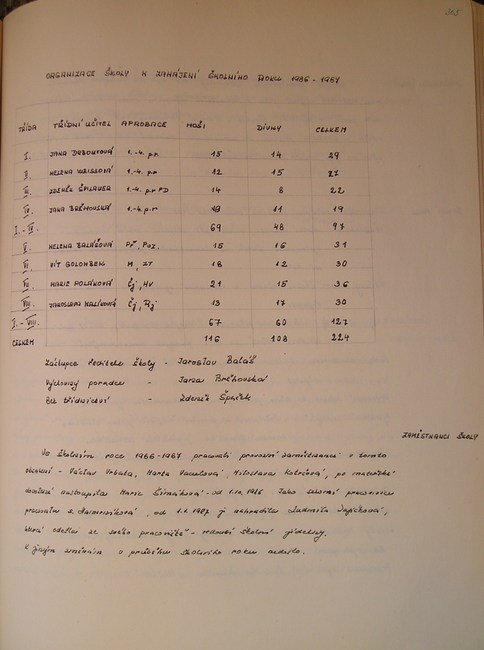 305
ORGANIZACE ŠKOLY K ZAHÁJENÍ ŠKOLNÍHO ROKU 1986-1987
TŘÍDA TŘÍDNÍ UČITEL APROBACE HOŠI DÍVKY CELKEM
I. JANA DRBOUTOVÁ 1.-4. p.r 15 14 29
II. HELENA 1.-4. p.r 12 15 27
III. ZDENĚK 1.-4. p.r 14 8 22
IV. JANA BRÉHOVSKÁ 1.-4. p.r 11 19
I.-IV. 69 48 97
V. HELENA BALÁŠOVÁ Př, Poz. 15 16 31
VI. VÍT GOLOMBEK M, ZT 18 12 30
VII. MARIE POLÁKOVÁ Čj, HV 21 15 36
VIII. JAROSLAVA Čj, Rj 13 17 30
I.-VIII. 67 60 127
CELKEM 116 108 224
Zástupce ředitele školy - Jaroslav Baláš
Výchovný poradce - Jana Bréhovská
Bez třídnictví - Zdeněk
ZAMĚSTNANCI ŠKOLY
Ve školním roce 1986-1987 pracovali provozní zaměstnanci v tomto
obsazení - Václav Vrbata, Marta Vaculová, Miloslava po mateřské
dovolené nastoupila Marie Šimáková - od 1.10.1986 Jako
pracovala od 1.1.1987 ji nahradila Ludmila
která odešla ze svého pracoviště - vedoucí školní jídelny.
K jiným změnám v průběhu školního roku nedošlo.